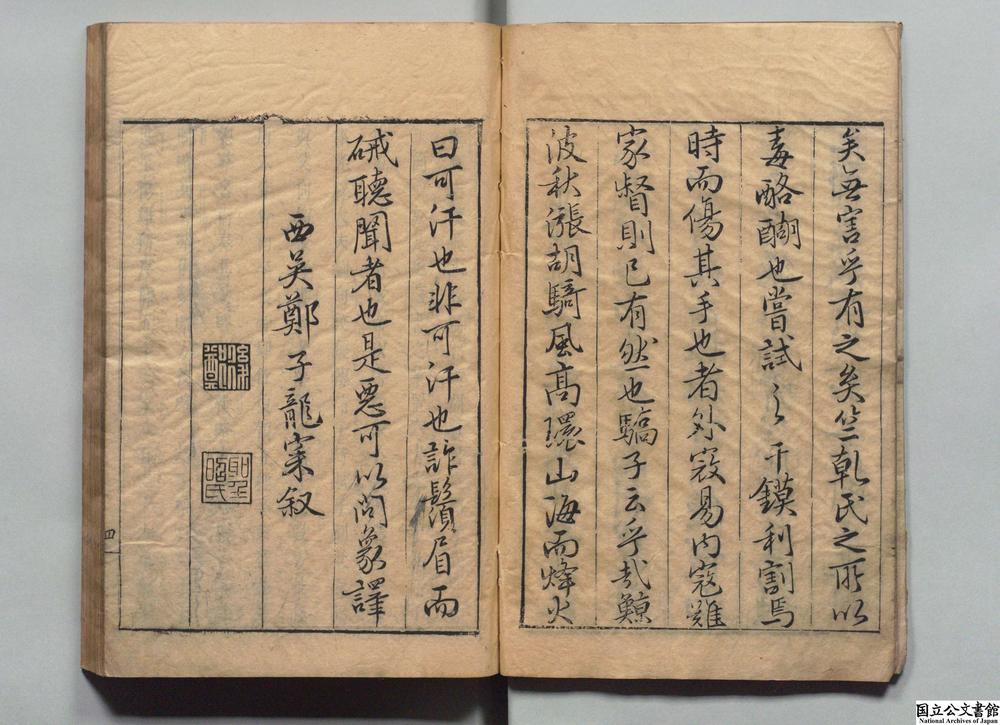 矣無害乎有之矣竺乾氏之所以
毒酪醐也嘗試之干鏌利割焉
時而傷其手也者外寇易內寇難
家督則已有然也驕子云乎哉鯨
波秋漲胡騎風高環山海而烽火
曰可汗也非可汗也詐鬚眉而
馘聽聞者也是惡可以問象譯
西吳鄭子龍寀叙
四
国立公文書館
National Archives of Japan